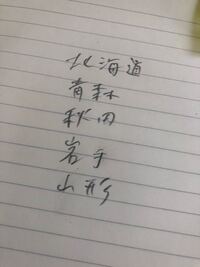 北海道
青森
秋田
岩手
山形